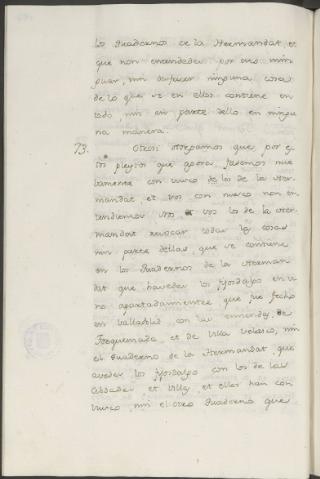 los Quadernos de la Hermandat, et
que non entendedes por eso min
guar, nin desfacer ninguna cosa
de lo que se en ellos contiene en
todo, nin en parte dello en ningu
na manera.
73. Otrosi otorgamos que por es
tos pleytos que agora facemos nue
bamente con vusco de los de la Her
mandat, et vos con nusco non en
tendemos nos vos los de la Her
mandat revocar todas las cosas
nin parte dellas, que se contiene
en los Quadernos de la Herman
dat que havedes los fijosdalgo en u
no apartadamientre que fue fecho
en Valladolid, con la emienda de
Torquemada et de Villa Velasco, nin
el Quaderno de la Hermandat, que
avedes los fijosdalgo con los de las
Cibdades et Villas, et ellos han con
vusco, nin el otro Quaderno que